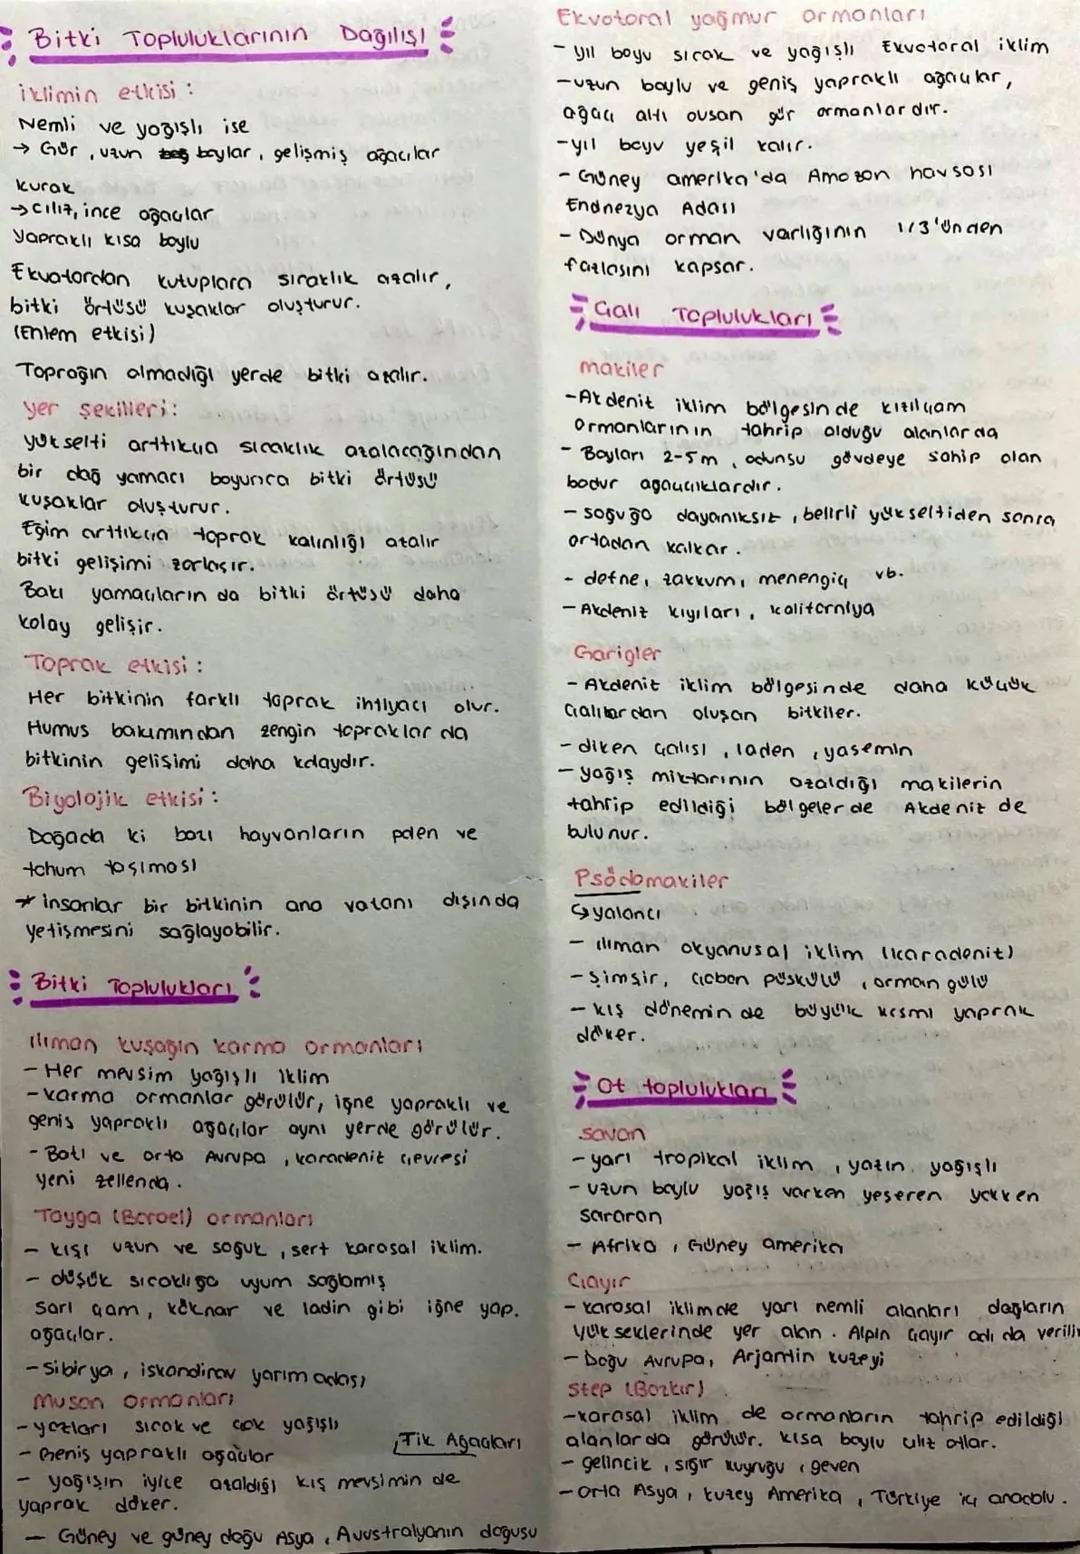 Bitki Topluluklarının Dağılışı
iklimin etkisi :
Nemli ve yağışlı ise
→ Gür, uzun boylar, gelişmiş ağaçlar
Kurak
→ cılız, ince ağaçlar
Yapraklı kısa boylu
Ekvatordan kutuplara sıcaklık azalır,
bitki örtüsü kuşaklar oluşturur.
(Enlem etkisi)
Toprağın olmadığı yerde bitki azalır.
Yer şekilleri:
Yükselti arttıkça sıcaklık azalacağından
bir dağ yamacı boyunca bitki örtüsü
kuşaklar oluşturur.
Eğim arttıkça toprak kalınlığı azalır
bitki gelişimi zorlaşır.
Bakı yamaçların da bitki örtüsü daha
kolay gelişir.
Toprak etkisi :
Her bitkinin farklı toprak ihtiyacı olur.
Humus bakımından zengin topraklar da
bitkinin gelişimi daha kolaydır.
Biyolojik etkisi :
Doğada ki bazı hayvanların polen ve
tohum taşıması
* insanlar bir bitkinin ana vatanı dışında
yetişmesini sağlayabilir.
Bitki Toplulukları
ılıman kuşağın karma ormanları
- Her mevsim yağışlı iklim
- karma ormanlar görülür, iğne yapraklı ve
geniş yapraklı ağaçlar aynı yerde görülür.
- Batı ve orta Avrupa, karadenit çevresi
yeni zellenda.
Tayga (Boroel) ormanları
- kışı uzun ve soğuk, sert karasal iklim.
- düşük sıcaklığa uyum sağlamış
sarı çam, köknar ve ladin gibi iğne yap.
ağaçlar.
- Sibirya, iskandinav yarım adası
Muson ormanları
- yazları sıcak ve çok yağışlı
- Geniş yapraklı ağaçlar
Tik Ağaçları
- yağışın iyice azaldığı kış mevsimin de
yaprak döker.
- Güney ve güney doğu Asya, Avustralyanın doğusu
Ekvatoral yağmur ormanları
- yıl boyu sıcak ve yağışlı Ekvatoral iklim
- uzun boylu ve geniş yapraklı ağaçlar,
ağaç altı ousan gür ormanlardır.
- yıl boyu yeşil kalır.
- Güney amerika'da Amazon havsası
Endnezya Adası
- Dünya orman varlığının 1/3'ünden
fazlasını kapsar.
Çalı Toplulukları
makiler
- Akdenit iklim bölgesinde kızılçam
ormanlarının tahrip olduğu alanlarda
- Boyları 2-5m, odunsu gövdeye sahip olan
bodur ağaççıklardır.
- soğuğa dayanıksız, belirli yükseltiden sonra
ortadan kalkar.
- defne, zakkum, menengiç vb.
- Akdeniz kıyıları, kaliforniya
Garigler
- Akdenit iklim bölgesinde daha küçük
çalılardan oluşan bitkiler.
- diken çalısı, laden, yasemin
- yağış miktarının azaldığı makilerin
tahrip edildiği bölgelerde Akdeniz de
bulunur.
Psödomakiler
↳ yalancı
- ılıman okyanusal iklim (karadenit)
- şimşir, çoban püskülü, orman gülü
- kış dönemin de büyük kısmı yaprak
döker.
Ot toplulukları
savan
- yarı tropikal iklim, yazın yağışlı
- uzun boylu yağış varken yeşeren yokken
sararan
- Afrika, Güney amerika
Çayır
- karasal iklimde yarı nemli alanları dağların
yükseklerinde yer alan. Alpin çayır adı da verilir
- Doğu Avrupa, Arjantin kuzeyi
step (Bozkır)
- karasal iklim de ormanların tahrip edildiği
alanlarda görülür. kısa boylu cılız otlar.
- gelincik, sığır kuyruğu, geven
- orta Asya, kuzey Amerika, Türkiye iç anadolu.